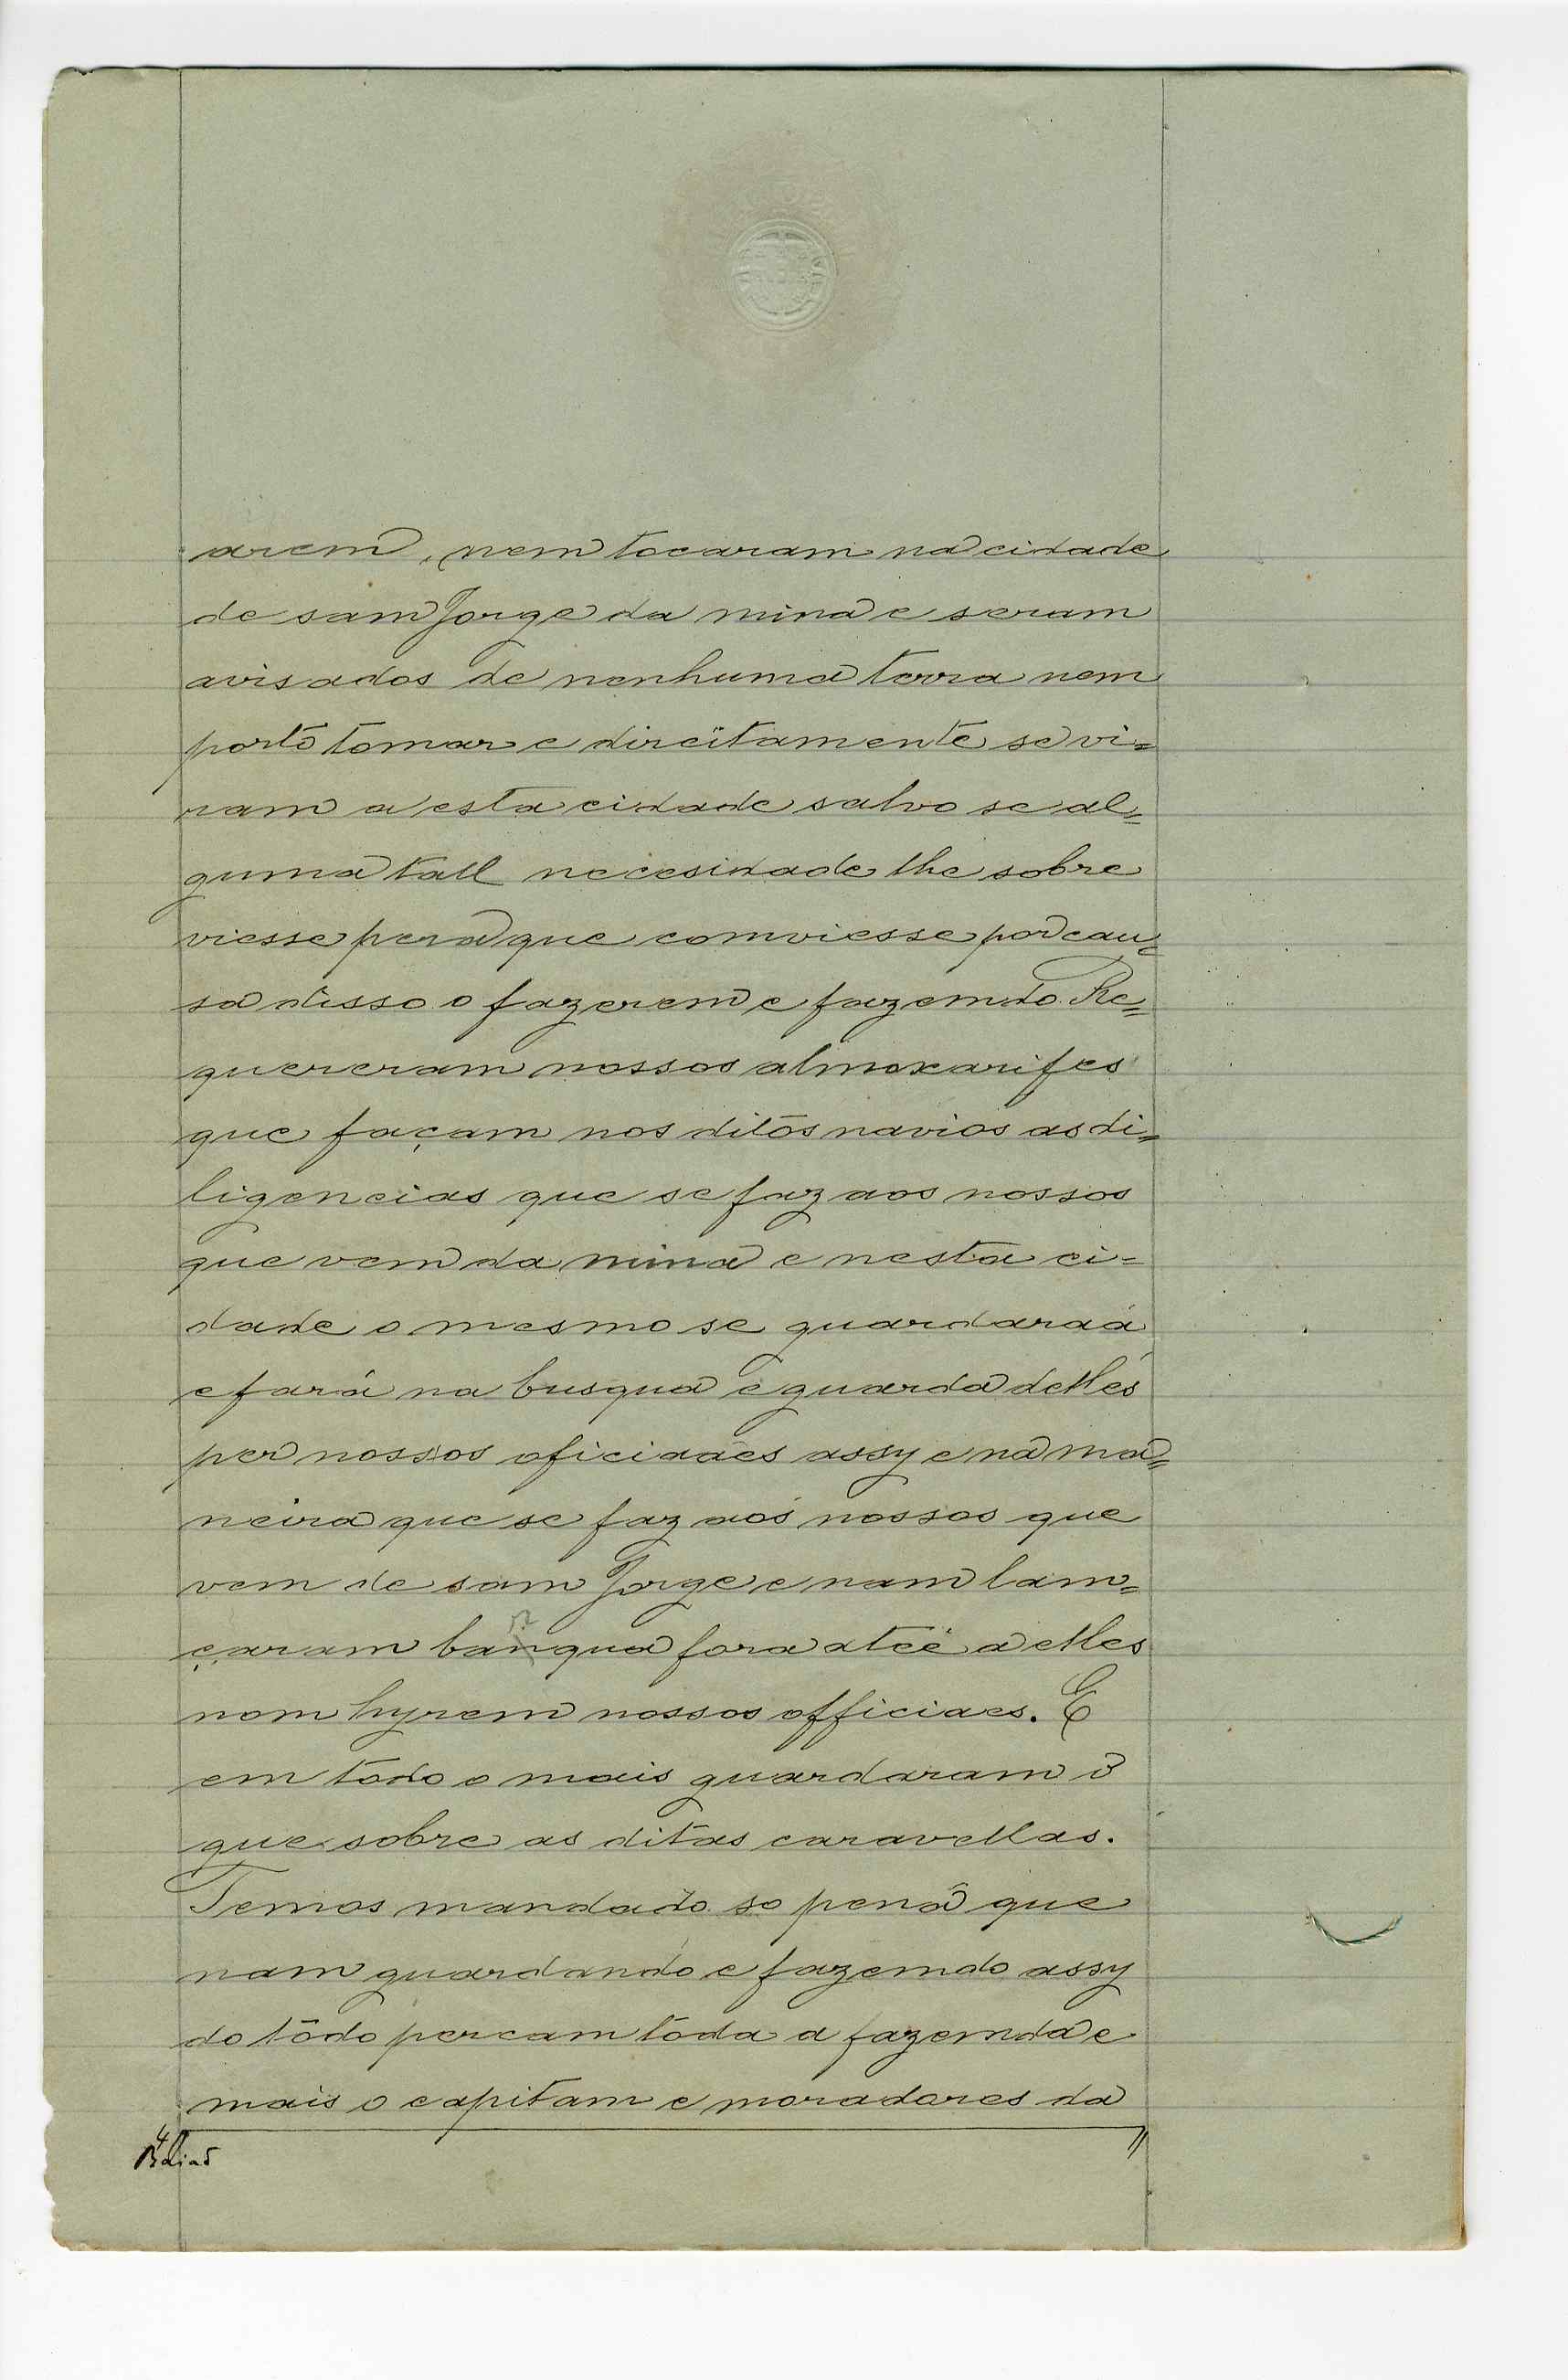 arem, nem tocaram na cidade
de sam Jorge da mina e seram
avisados de nenhuma terra nem
porto tomar e direitamente se vi=
ram a esta cidade salvo se al=
guma tall necesidade lhe sobre
viesse pera que comviesse por cau=
sa disso o fazerem e fazemdo Re=
quereram nossos almoxarifes
que façam nos ditos navios as di=
ligencias que se faz aos nossos
que vem da mina e nesta ci=
dade o mesmo se guardaraá
e fará na busqua e guarda delles
per nossos oficiaaes assy e na ma=
neira que se faz aos nossos que
vem de sam Jorge e nam lam=
çaram banqua fora atée a elles
nom hyrem nossos officiaes. E
em todo o mais guardaram o
que sobre as ditas caravellas.
Temos mandado so pena que
nam guardando e fazemdo assy
do todo percam toda a fazemda e
mais o capitam e moradores da